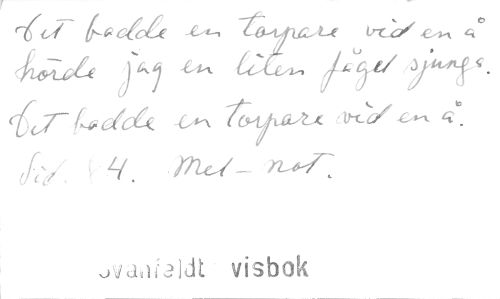 Det badde en torpare vid en å
hörde jag en liten fågel sjunga.
Det badde en torpare vid en å.
Sid. 84. Mel-not.
Svanfeldt visbok